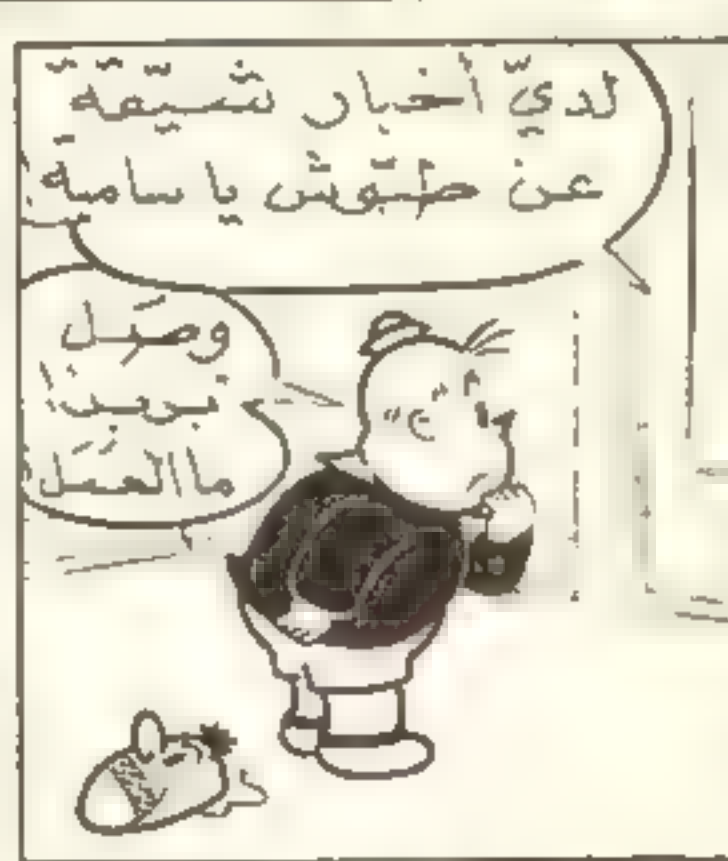 لديّ أخبار شيّقة
عن طبّوش يا سامية
وصَل
ما العمَل